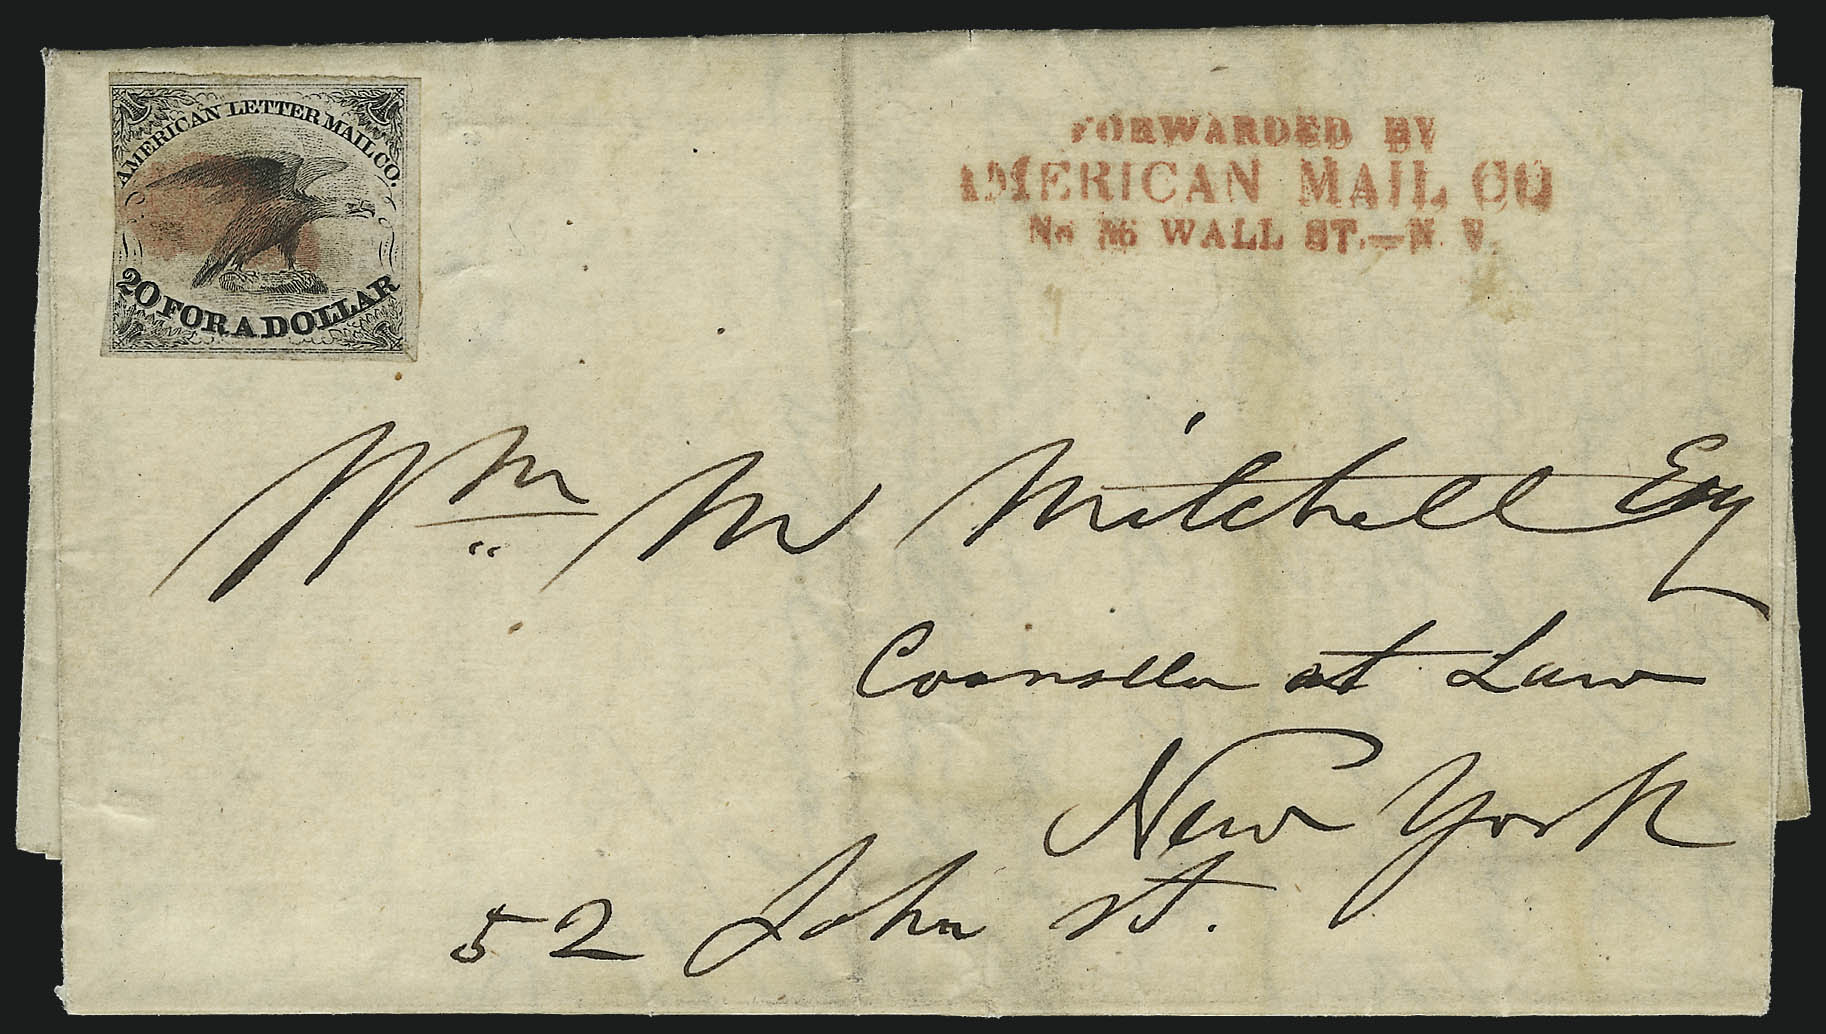 AMERICAN LETTER MAIL CO.
20 FOR A DOLLAR
FORWARDED BY
AMERICAN MAIL CO
No 56 WALL ST.—N. Y.
Wm M Mitchell Esq
Counsellor at Law
New York
52 John st.